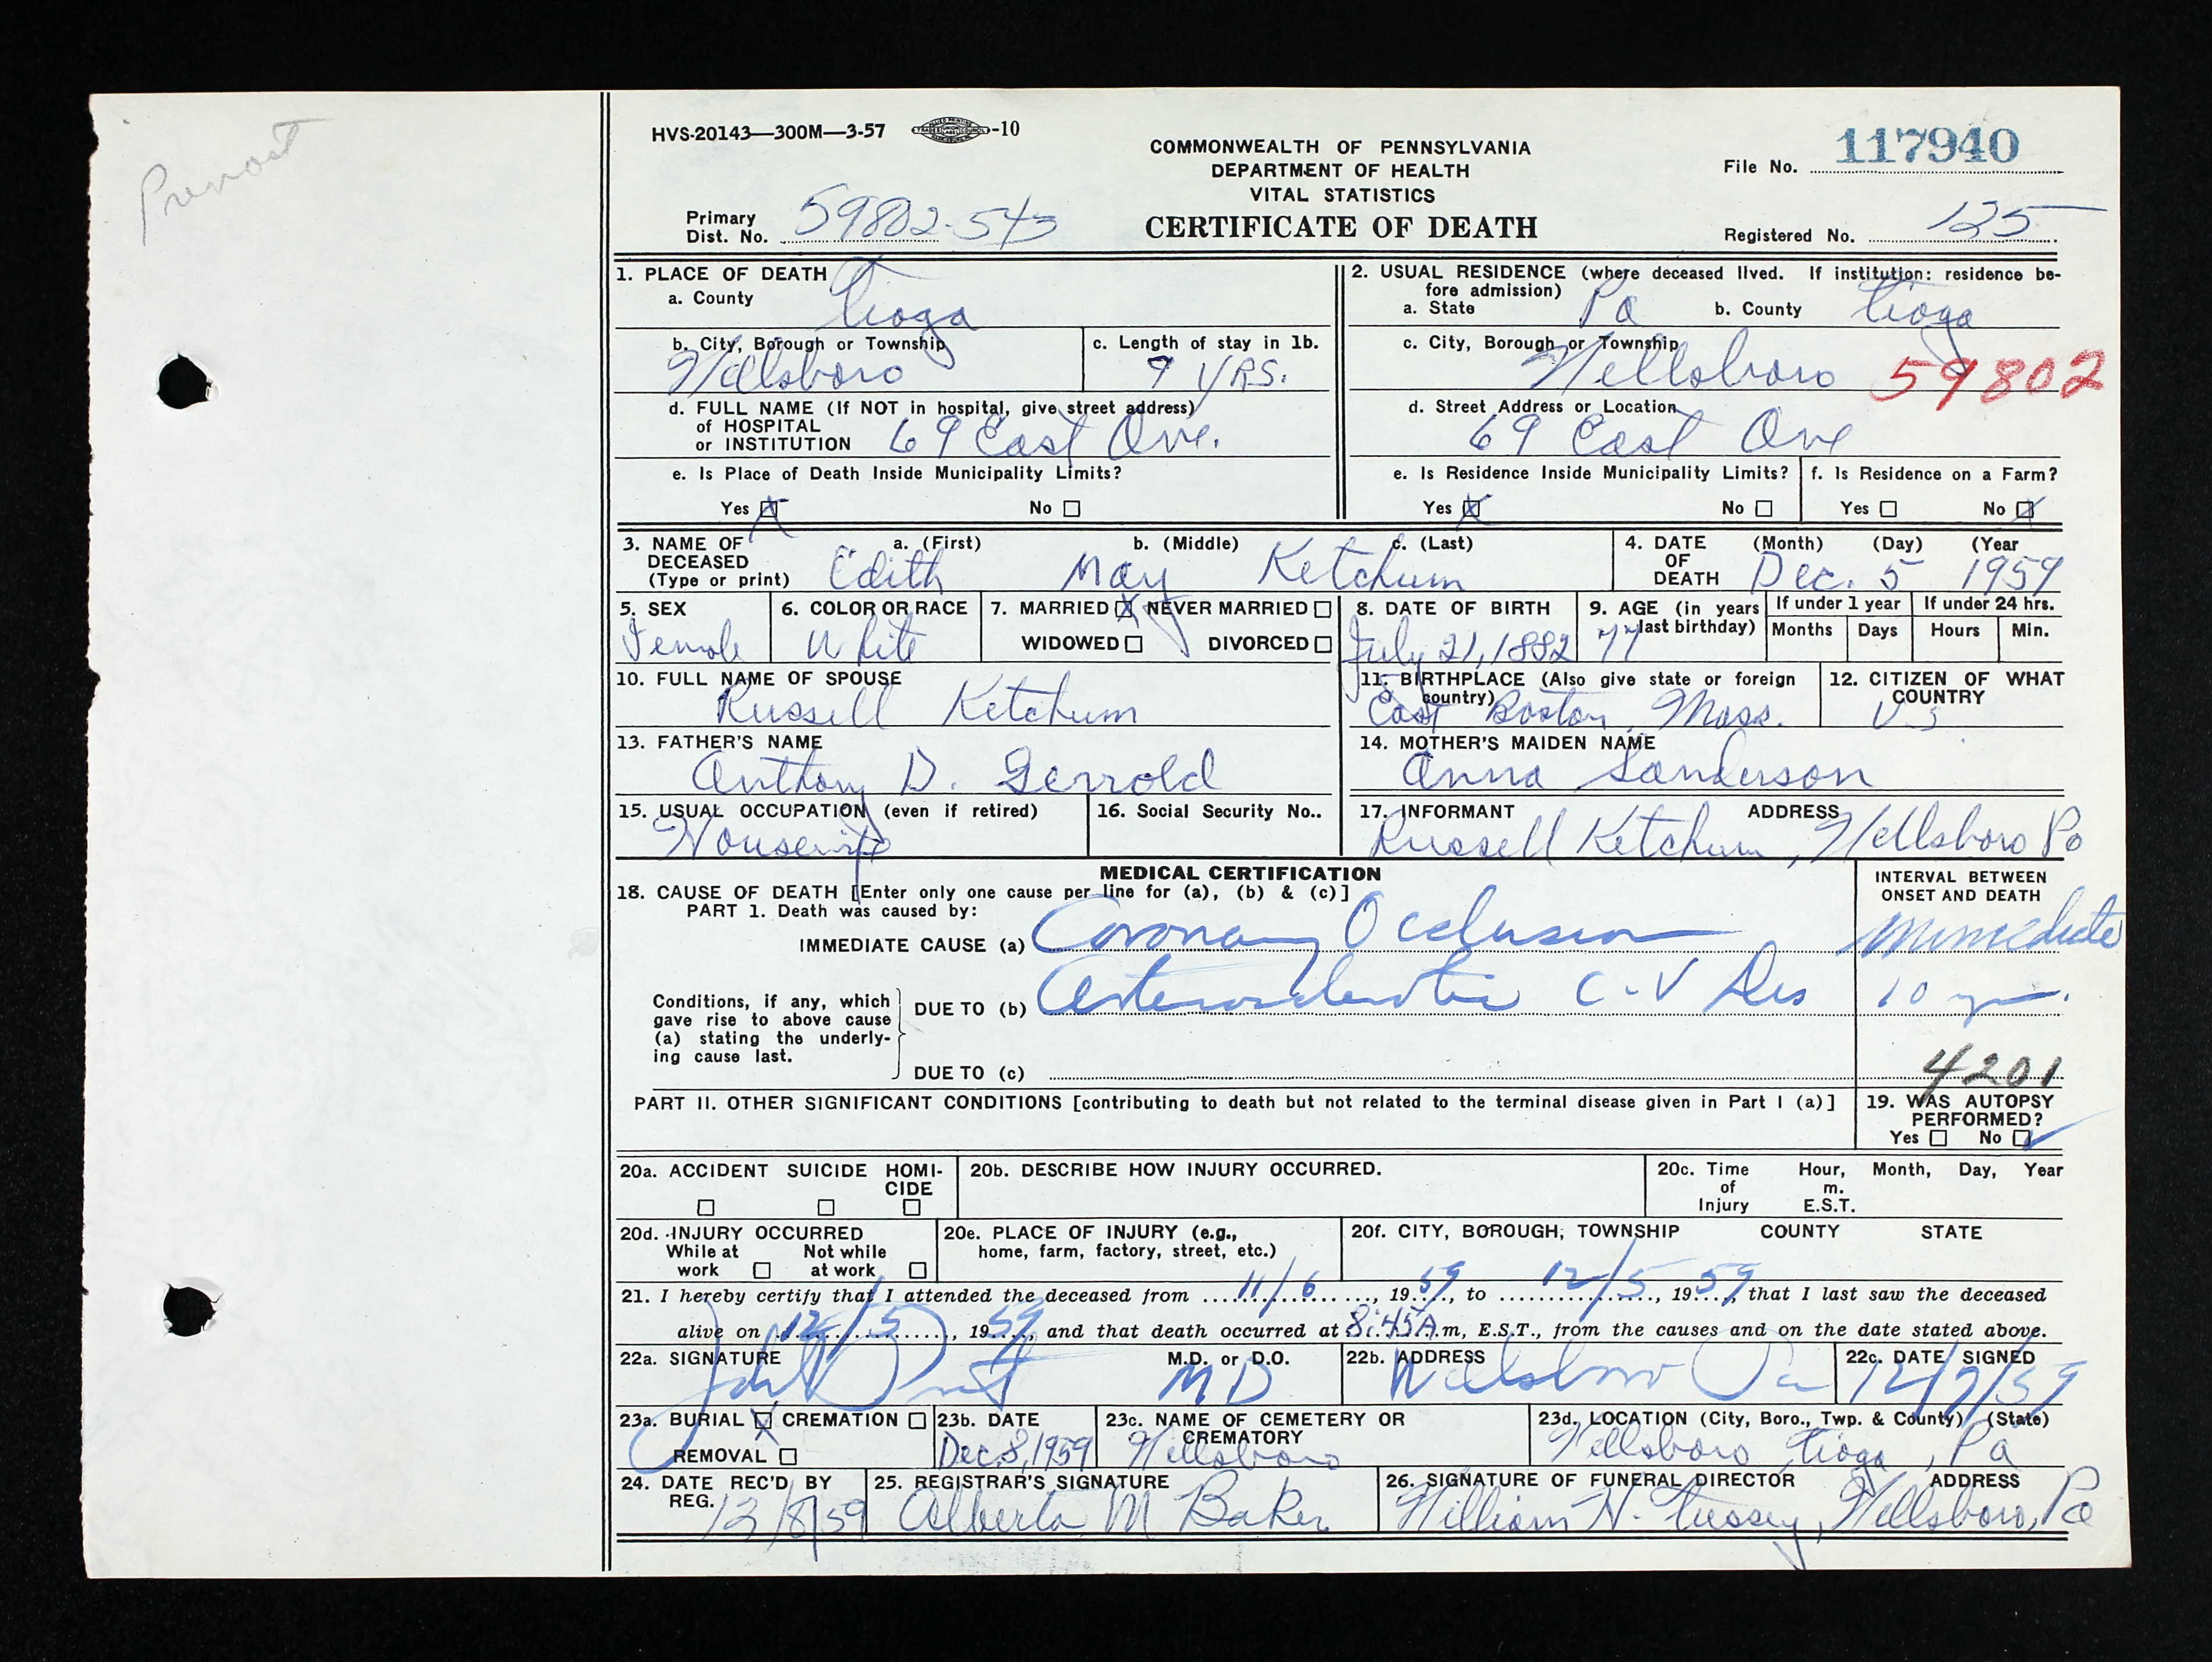 Prevost
HVS-20143—300M—3-57 -10
COMMONWEALTH OF PENNSYLVANIA
DEPARTMENT OF HEALTH
VITAL STATISTICS
CERTIFICATE OF DEATH
File No. 117940
Primary Dist. No. 59802-543
Registered No. 125
1. PLACE OF DEATH
a. County Tioga
2. USUAL RESIDENCE (where deceased lived. If institution: residence before admission)
a. State Pa b. County Tioga
b. City, Borough or Township Wellsboro
c. Length of stay in 1b. 9 YRS.
c. City, Borough or Township Wellsboro 59802
d. FULL NAME (If NOT in hospital, give street address) of HOSPITAL or INSTITUTION 69 East Ave.
d. Street Address or Location 69 East Ave
e. Is Place of Death Inside Municipality Limits?
Yes X No
e. Is Residence Inside Municipality Limits?
Yes X No
f. Is Residence on a Farm?
Yes No X
3. NAME OF DECEASED (Type or print) a. (First) b. (Middle) c. (Last)
Edith May Ketchum
4. DATE OF DEATH (Month) (Day) (Year
Dec. 5 1959
5. SEX Female
6. COLOR OR RACE White
7. MARRIED X NEVER MARRIED
WIDOWED DIVORCED
8. DATE OF BIRTH July 21, 1882
9. AGE (in years last birthday) 77
If under 1 year Months Days
If under 24 hrs. Hours Min.
10. FULL NAME OF SPOUSE Russell Ketchum
11. BIRTHPLACE (Also give state or foreign country) East Boston, Mass.
12. CITIZEN OF WHAT COUNTRY U S
13. FATHER'S NAME Anthony D. Gerrold
14. MOTHER'S MAIDEN NAME Anna Sanderson
15. USUAL OCCUPATION (even if retired) Housewife
16. Social Security No..
17. INFORMANT ADDRESS
Russell Ketchum, Wellsboro Pa
MEDICAL CERTIFICATION
18. CAUSE OF DEATH [Enter only one cause per line for (a), (b) & (c)]
INTERVAL BETWEEN ONSET AND DEATH
PART 1. Death was caused by:
IMMEDIATE CAUSE (a) Coronary Occlusion immediate
Conditions, if any, which gave rise to above cause (a) stating the underlying cause last.
DUE TO (b) Arteriosclerotic C-V Dis 10 yrs.
DUE TO (c) 4201
PART II. OTHER SIGNIFICANT CONDITIONS [contributing to death but not related to the terminal disease given in Part I (a)]
19. WAS AUTOPSY PERFORMED?
Yes No ✓
20a. ACCIDENT SUICIDE HOMICIDE
20b. DESCRIBE HOW INJURY OCCURRED.
20c. Time of Injury Hour, Month, Day, Year
m.
E.S.T.
20d. INJURY OCCURRED
While at work Not while at work
20e. PLACE OF INJURY (e.g., home, farm, factory, street, etc.)
20f. CITY, BOROUGH, TOWNSHIP COUNTY STATE
21. I hereby certify that I attended the deceased from 11/6, 1959, to 12/5, 1959, that I last saw the deceased
alive on 12/5, 1959, and that death occurred at 8:45 A.m, E.S.T., from the causes and on the date stated above.
22a. SIGNATURE M.D. or D.O.
MD
22b. ADDRESS Wellsboro Pa
22c. DATE SIGNED 12/7/59
23a. BURIAL X CREMATION
REMOVAL
23b. DATE Dec. 8, 1959
23c. NAME OF CEMETERY OR CREMATORY Wellsboro
23d. LOCATION (City, Boro., Twp. & County) (State)
Wellsboro Tioga, Pa
24. DATE REC'D BY REG. 12/8/59
25. REGISTRAR'S SIGNATURE Alberta M Baker
26. SIGNATURE OF FUNERAL DIRECTOR ADDRESS
William H. Tussey, Wellsboro, Pa